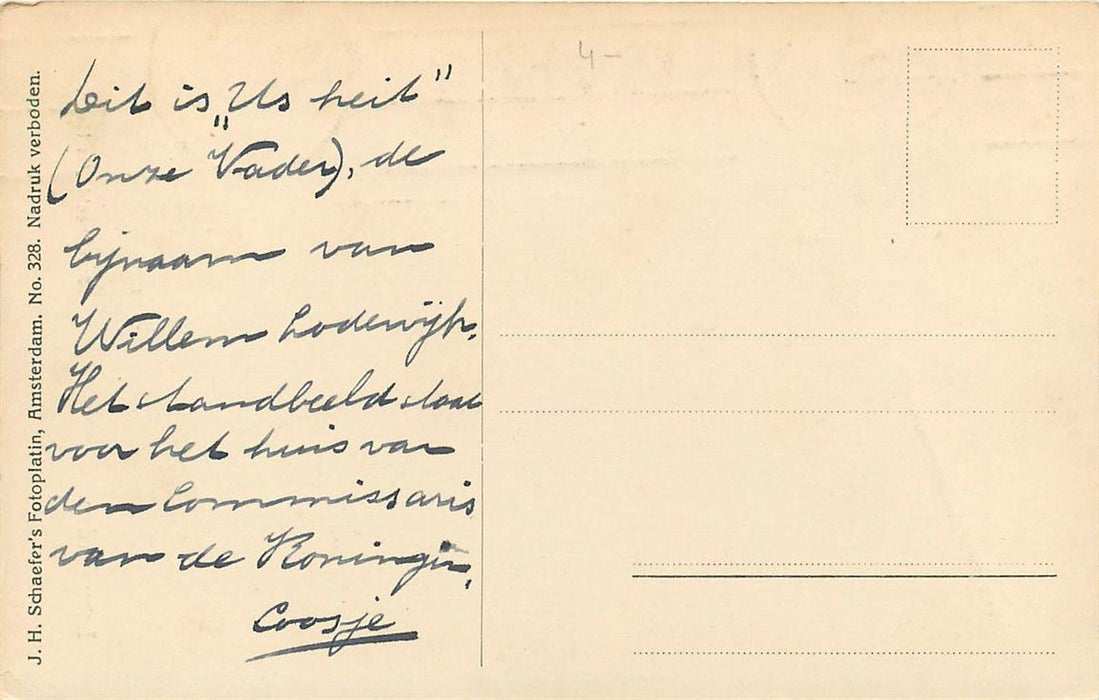 Dit is „Us heit"
(Onze Vader), de
bijnaam van
Willem Lodewijk.
Het standbeeld staat
voor het huis van
den Commissaris
van de Koningin,
Coosje
4-
J. H. Schaefer's Fotoplatin, Amsterdam. No. 328. Nadruk verboden.